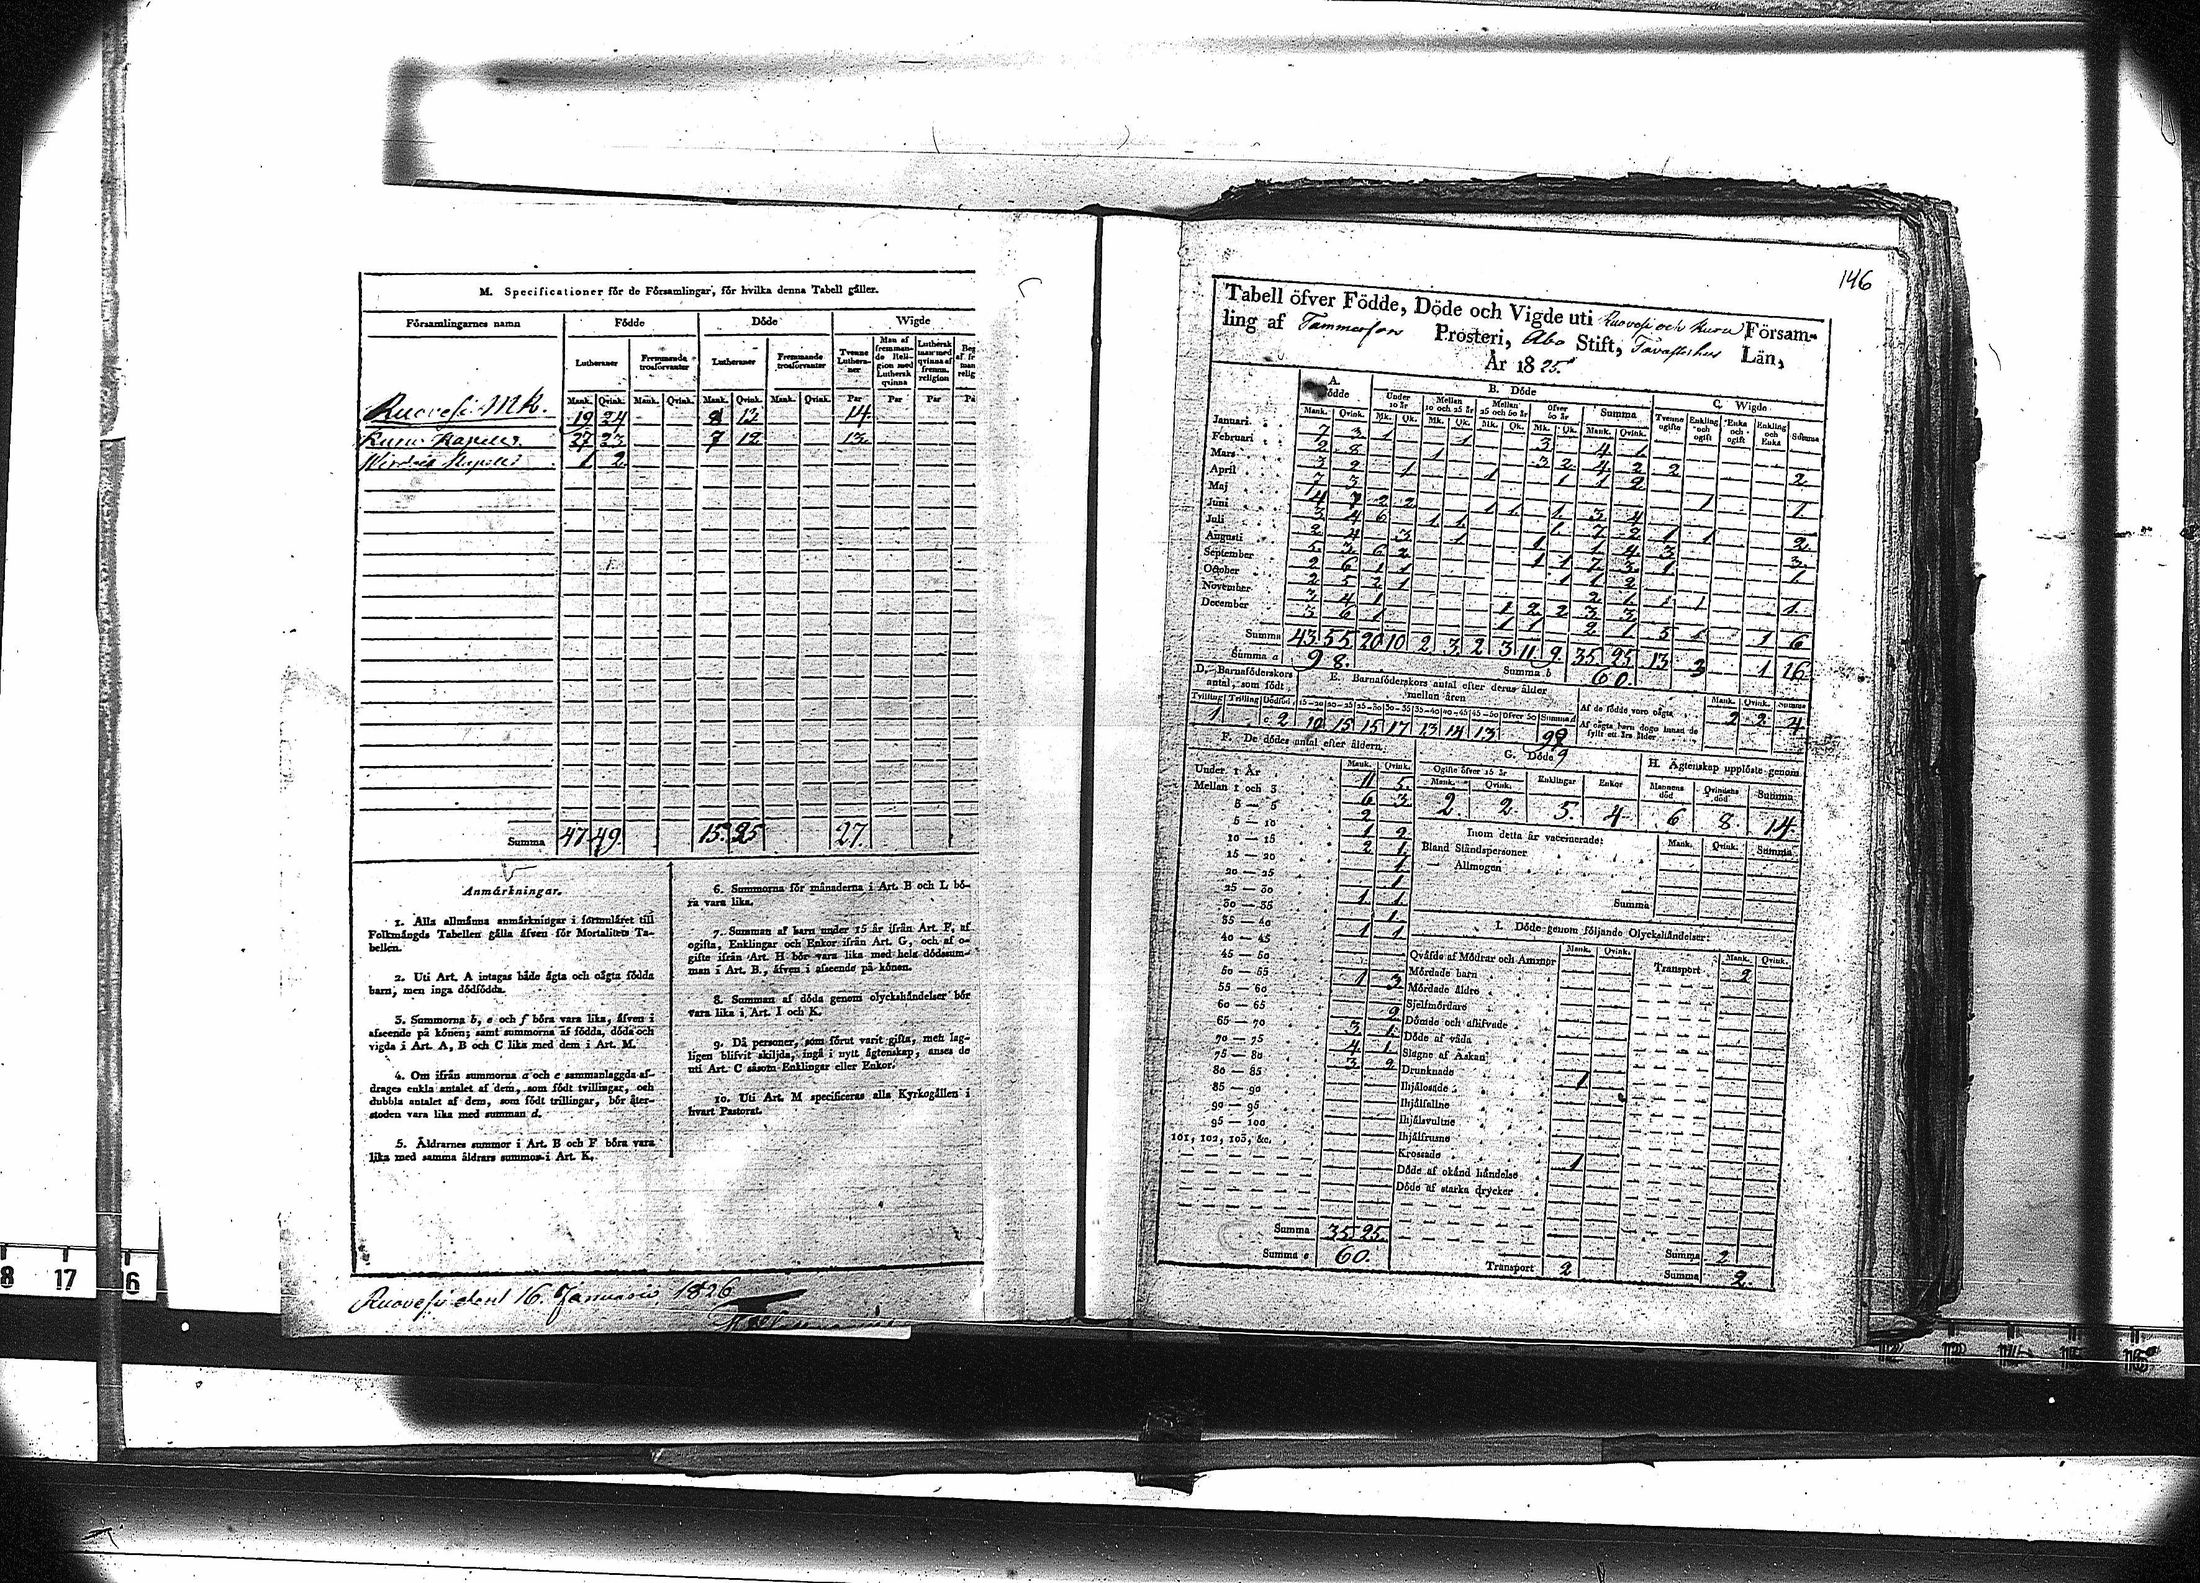 M. Specificationer för de Församlingar, för hvilka denna Tabell gäller.
Församlingarnes namn Födde Döde Wigde
Lutheraner Fremmande trosförvanter Lutheraner Fremmande trosförvanter Tvenne Lutheraner Man af fremmande Religion med Luthersk qvinna Luthersk man med qvinna af fremm. religion
Mank. Qvink. Mank. Qvink. Mank. Qvink. Mank. Qvink. Par Par Par Pa
Ruovesi MK. 19 24 8 13 14
Kuru Kapell 27 23 7 12 13
Wirdois Kapell 1 2
Summa 47 49 15 25 27
Anmärkningar.
1. Alla allmänna anmärkningar i formuläret till
Folkmängds Tabellen gälla äfven för Mortalitets Ta-
bellen.
2. Uti Art. A intagas både ägta och oägta födda
barn, men inga dödfödda.
3. Summorna b, e och f böra vara lika, äfven i
afseende på könen; samt summorna af födda, döda och
vigda i Art. A, B och C lika med dem i Art. M.
4. Om ifrån summorna a och c sammanlaggda af-
drages enkla antalet af dem, som födt tvillingar, och
dubbla antalet af dem, som födt trillingar, bör åter-
stoden vara lika med summan d.
5. Åldrarnes summor i Art. B och F böra vara
lika med samma åldrars summor i Art. K.
6. Summorna för månaderna i Art. B och L bö-
ra vara lika.
7. Summan af barn under 15 år ifrån Art. F, af
ogifta, Enklingar och Enkor ifrån Art. G, och af o-
gifte ifrån Art. H bör vara lika med hela dödssum-
man i Art. B., äfven i afseende på könen.
8. Summan af döda genom olyckshändelser bör
vara lika i Art. I och K.
9. Då personer, som förut varit gifta, men lag-
ligen blifvit skiljda, ingå i nytt ägtenskap, anses de
uti Art. C såsom Enklingar eller Enkor.
10. Uti Art. M specificeras alla Kyrkogällen i
hvart Pastorat.
Ruovesi den 16. Januarii 1826
146
Tabell öfver Födde, Döde och Vigde uti Ruovesi och Kuru Försam-
ling af Tammerfors Prosteri, Åbo Stift, Tavastehus Län,
År 1825.
A. Födde B. Döde C. Wigde
Under 10 år Mellan 10 och 25 år Mellan 25 och 50 år Öfver 50 år Summa Tvenne ogifte Enkling och ogift Enka och ogift Enkling och Enka Summa
Mank. Qvink. Mk. Qk. Mk. Qk. Mk. Qk. Mk. Qk. Mank. Qvink.
Januari 7 3 1 1 3 4 1
Februari 2 8 1 3 2 4 2 2 2
Mars 3 2 1 1 1 1 2
April 7 3 1 1
Maj 4 7 2 2 1 1 1 3 4
Juni 3 4 6 1 1 1 7 2 1 1 2
Juli 2 4 3 1 1 1 4 3 3
Augusti 5 3 6 2 1 1 7 3 1 1
September 2 6 1 1 1 1 2
October 2 5 2 1 2 1 1
November 3 4 1 1 2 2 3 3
December 3 6 1 1 1 2 1 5 1 6
Summa 43 55 20 10 2 3 2 3 11 9 35 25 13 3 1 16
Summa a 98. Summa b 60.
D. Barnaföderskors antal, som födt
Tvilling Trilling Dödföd.
1 c 2
E. Barnaföderskors antal efter deras ålder mellan åren
15—20 20—25 25—30 30—35 35—40 40—45 45—50 öfver 50 Summa d
10 15 15 17 13 14 13 99
Mank. Qvink. Summa
Af de födde voro oägta 2 2 4
Af oägta barn dogo innan de fyllt ett års ålder
F. De dödes antal efter åldern.
Mank. Qvink.
Under 1 År 11 5
Mellan 1 och 3 6 3
3 — 5 2
5 — 10 1 2
10 — 15 2 1
15 — 20 1
20 — 25 1
25 — 30 1 1
30 — 35 1
35 — 40 1 1
40 — 45
45 — 50
50 — 55 1 3
55 — 60
60 — 65 2
65 — 70 3 1
70 — 75 4 1
75 — 80 3 2
80 — 85
85 — 90
90 — 95
95 — 100
101, 102, 103, &c.
Summa 35 25
Summa e 60.
G. Döde
Ogifte öfver 15 år Enklingar Enkor
Mank. Qvink.
2. 2. 5. 4
H. Ägtenskap upplöste genom
Mannens död Qvinnans död Summa
6 8 14
Inom detta år vaccinerade: Mank. Qvink. Summa
Bland Ståndspersoner
— Allmogen
Summa
I. Döde genom följande Olyckshändelser:
Mank. Qvink. Transport Mank. Qvink.
2
Qväfde af Mödrar och Ammor
Mördade barn
Mördade äldre
Sjelfmördare
Dömde och aflifvade
Döde af våda
Slagne af Åskan
Drunknade 1
Ihjälosade
Ihjälfallne
Ihjälsvultne
Ihjälfrusne
Krossade 1
Döde af okänd händelse
Döde af starka drycker
Transport 2
Summa 2
Summa 2.
8 17 16